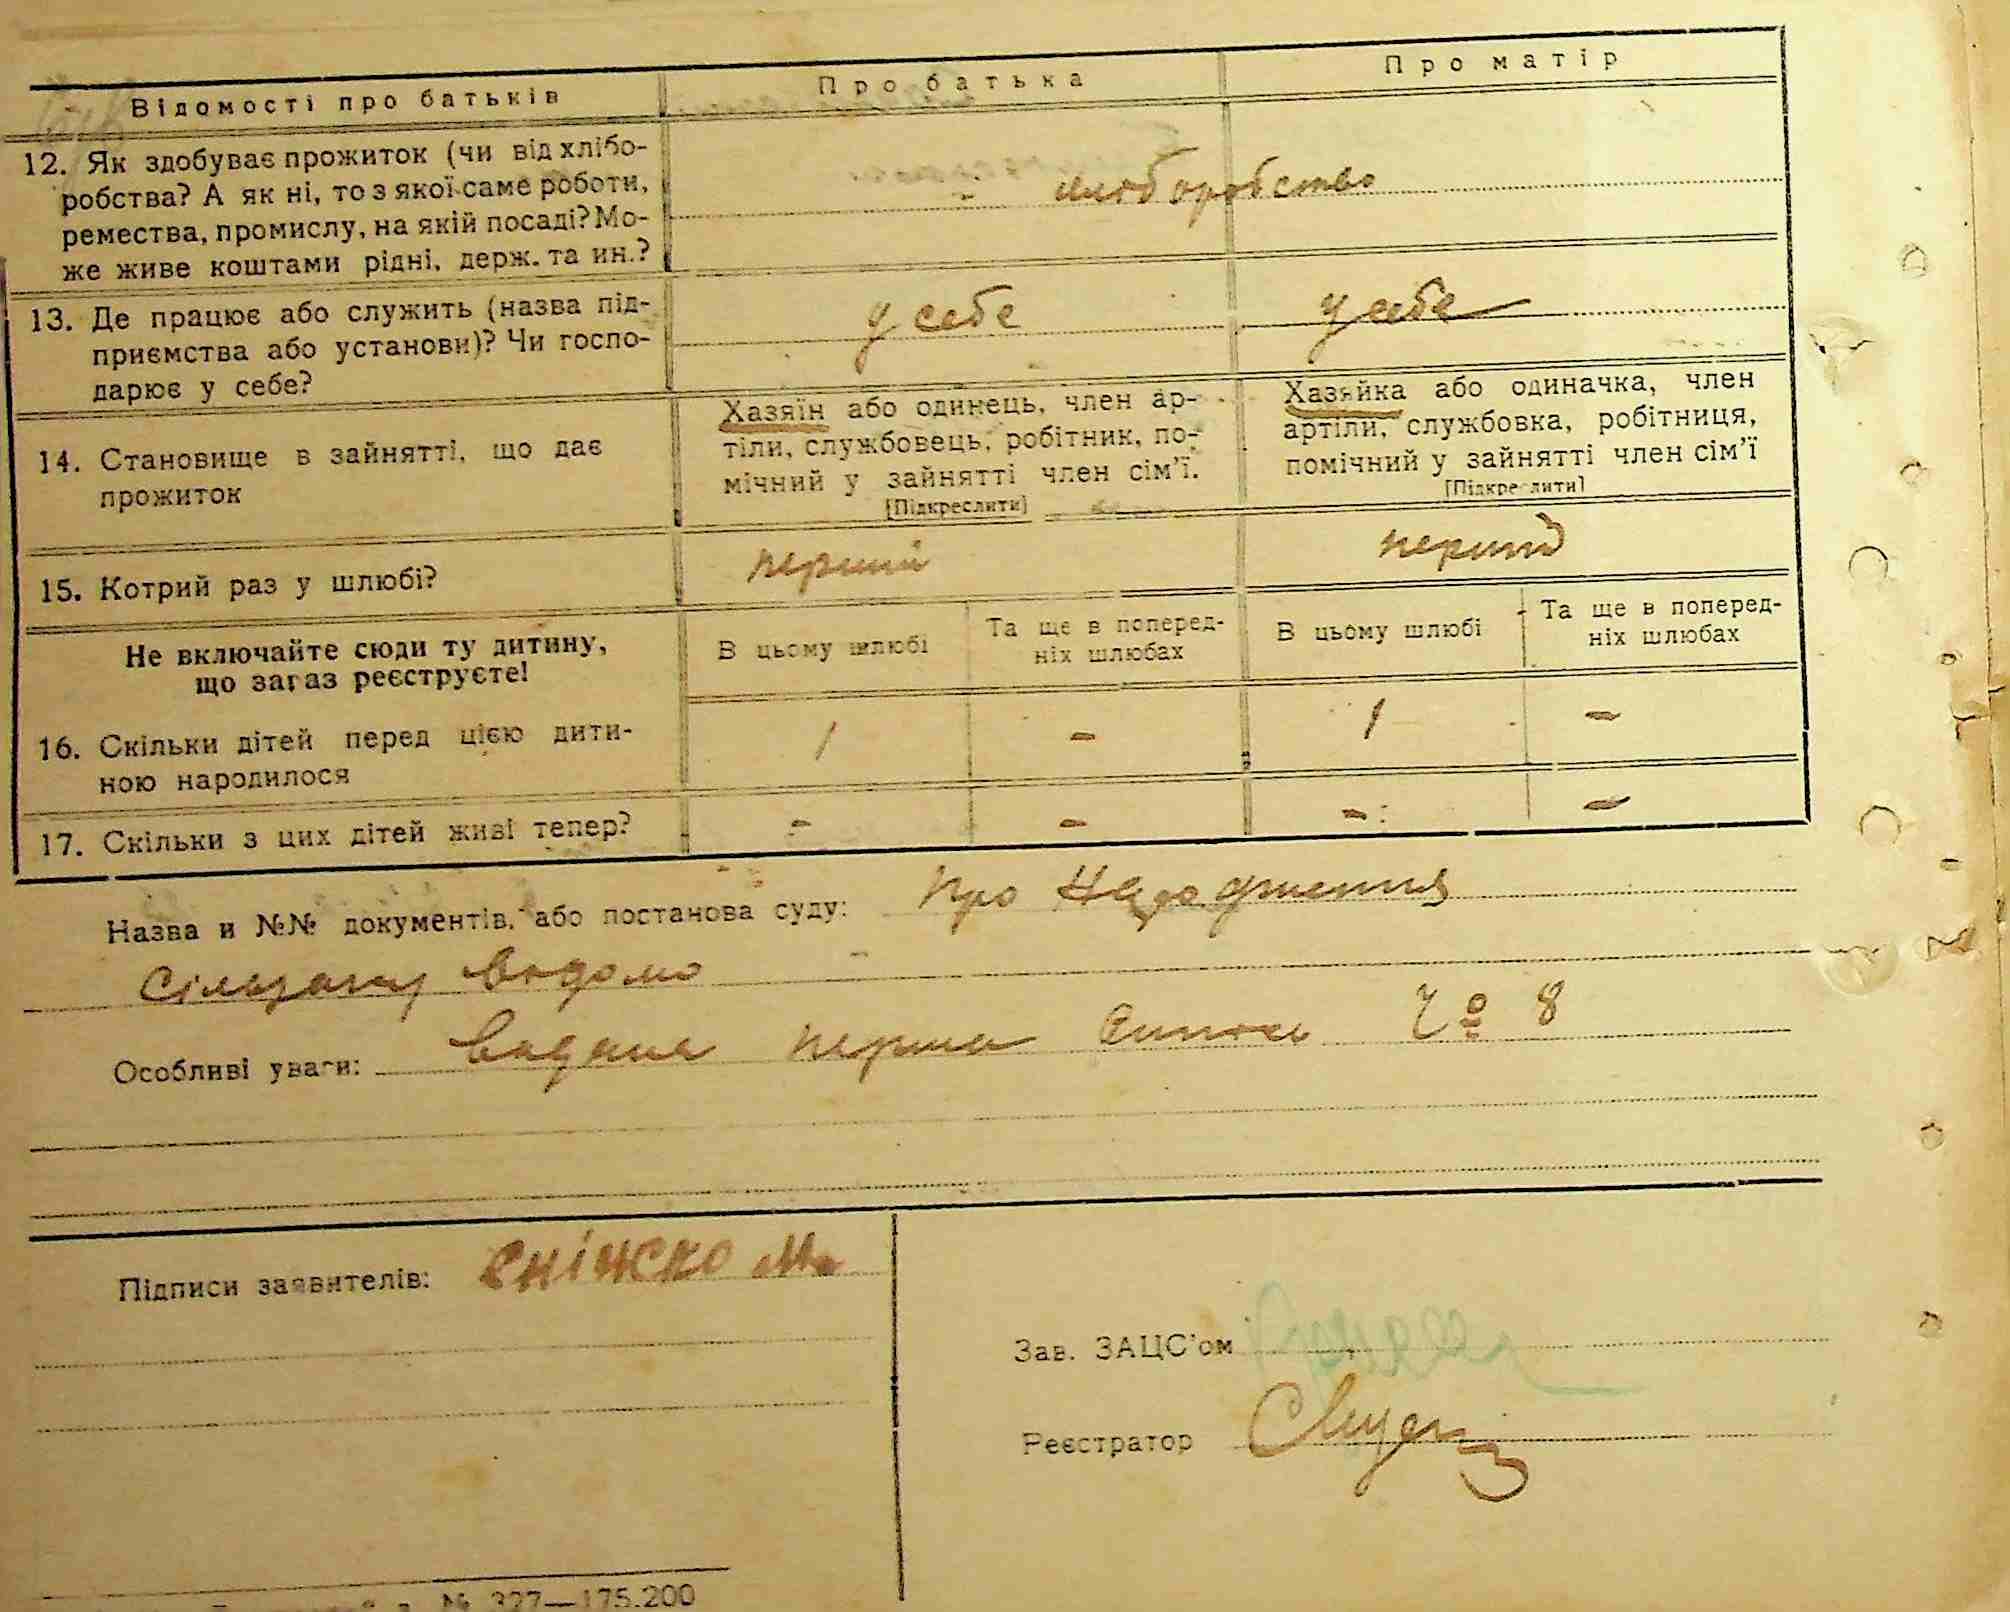 Відомості про батьків Про батька Про матір
12. Як здобуває прожиток (чи від хлібо-
робства? А як ні, то з якої саме роботи,
ремества, промислу, на якій посаді? Мо-
же живе коштами рідні, держ. та ин.?
хлоборобство
13. Де працює або служить (назва під-
приємства або установи)? Чи госпо-
дарює у себе?
у себе у себе
14. Становище в зайнятті, що дає
прожиток
Хазяїн або одинець, член ар-
тіли, службовець, робітник, по-
мічний у зайнятті член сім'ї.
[Підкреслити]
Хазяйка або одиначка, член
артіли, службовка, робітниця,
помічний у зайнятті член сім'ї
[Підкреслити]
15. Котрий раз у шлюбі? перший перший
Не включайте сюди ту дитину,
що зараз реєструєте!
В цьому шлюбі
Та ще в поперед-
ніх шлюбах
В цьому шлюбі
Та ще в поперед-
ніх шлюбах
16. Скільки дітей перед цією дити-
ною народилося
1 - 1 -
17. Скільки з цих дітей живі тепер? - - - -
Назва и №№ документів, або постанова суду: Про народження
сільраду відомо
Особливі уваги: видана перша випись № 8
Підписи заявителів: Сніжко
Зав. ЗАЦС'ом
Реєстратор
№ 327—175.200